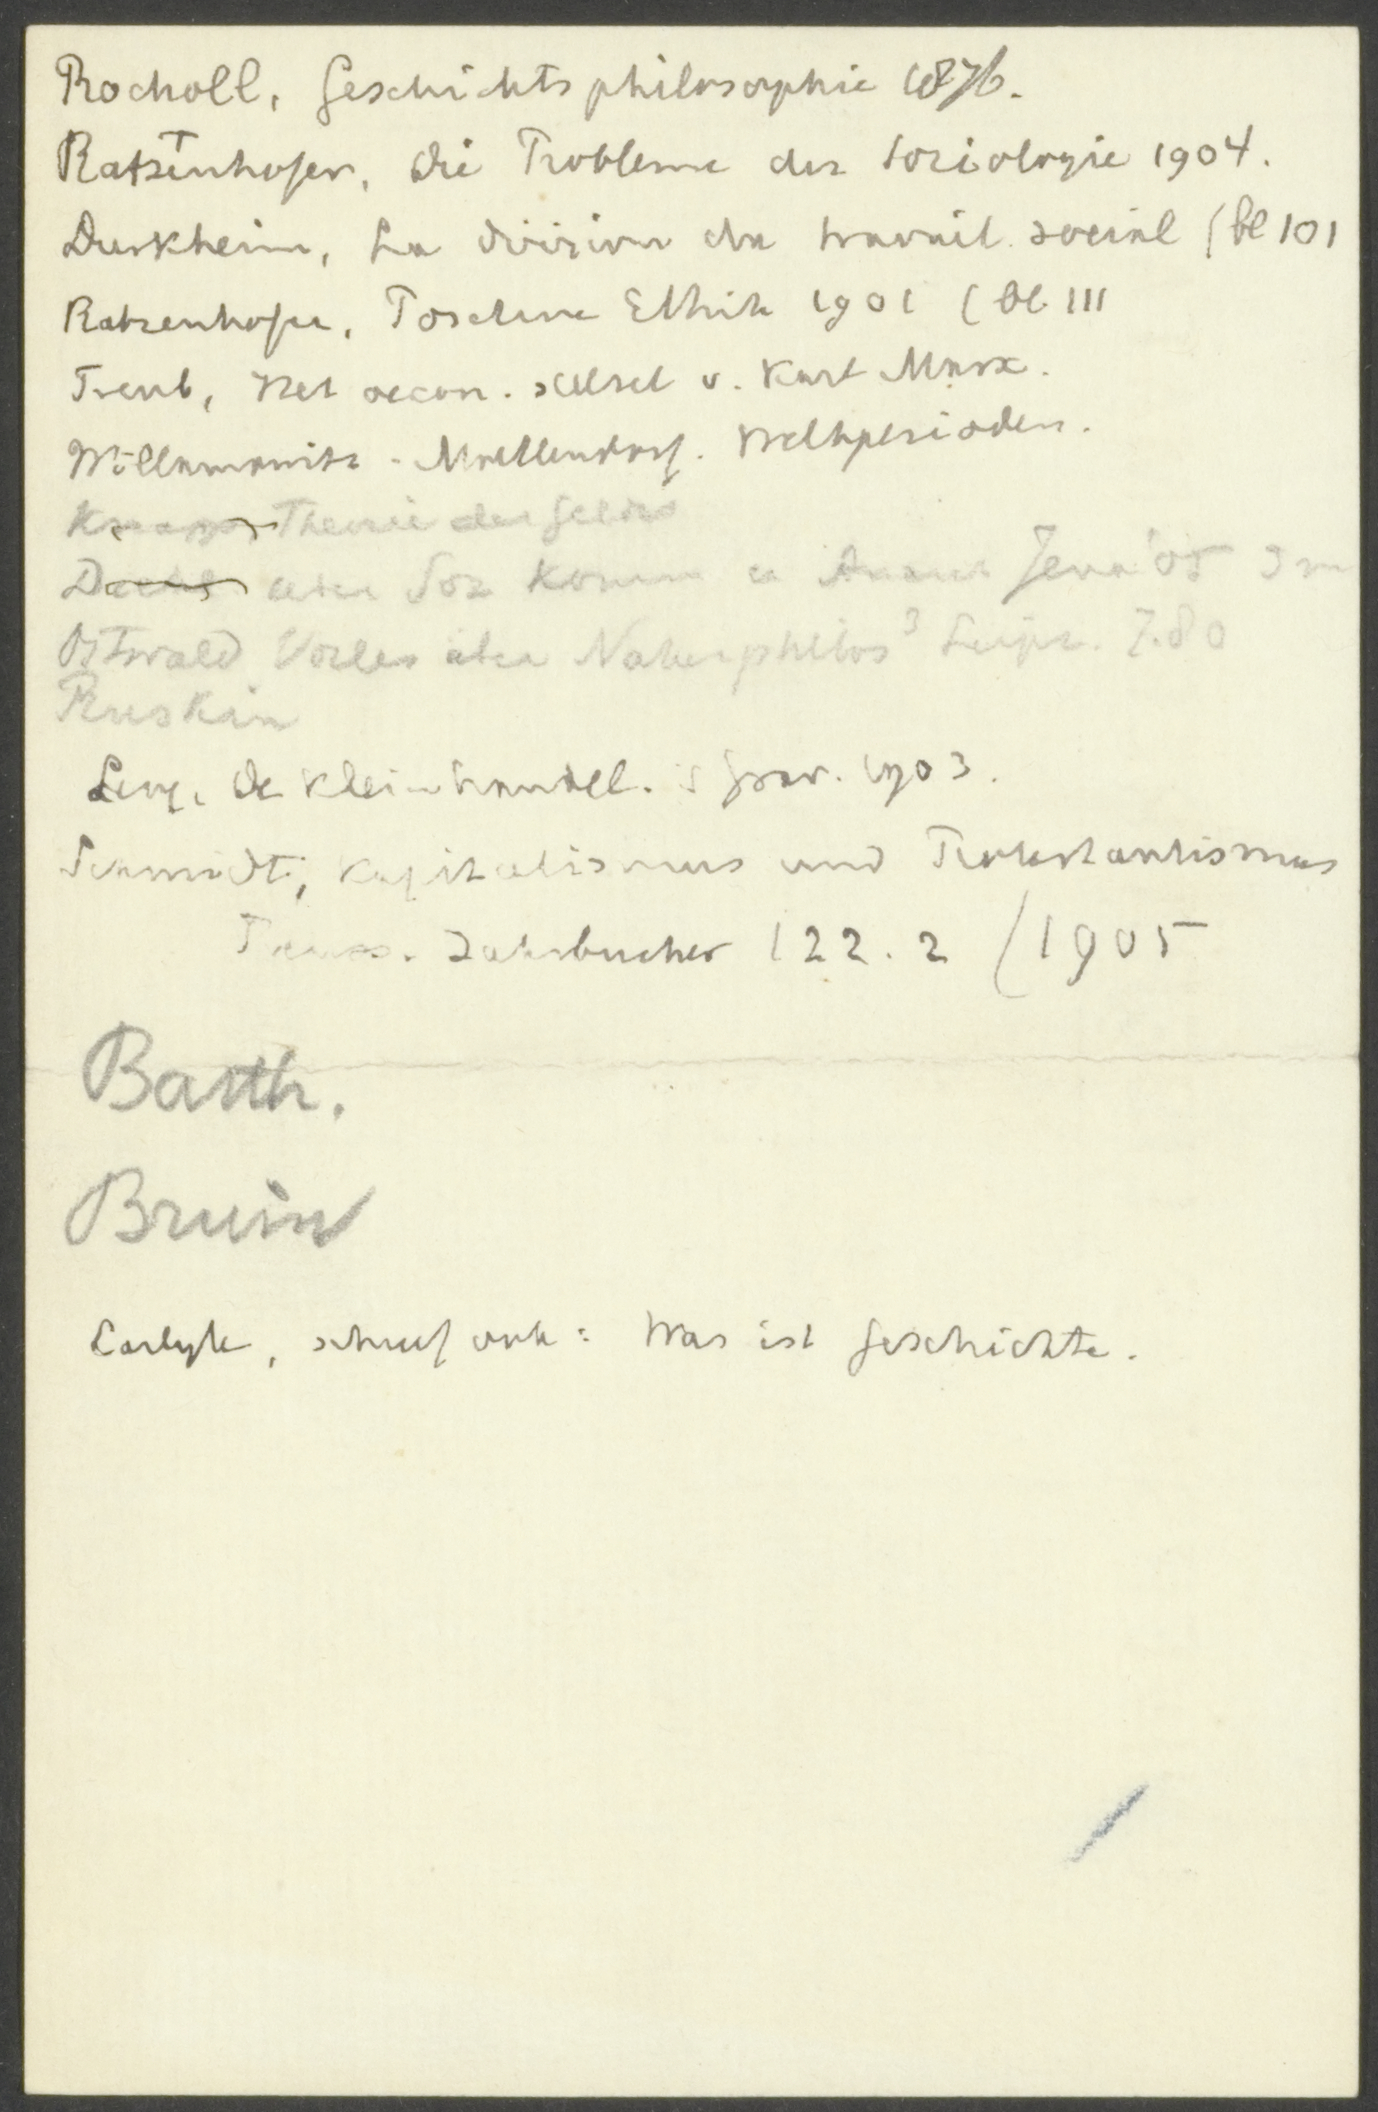 Rocholl, Geschichtsphilosophie 1876.
Ratzenhofer, Die Probleme der Soziologie 1904.
Durkheim, La division du travail social (bl 101
Ratzenhofer, Positive Ethik 1901 (bl. 111
Treub, Het oecon. stelsel v. Karl Marx.
Willamowitz-Moellendorf. Weltperioden.
Knapp, Theorie des Geldes
uber Soz Komm u Anarch Jena '05 3 m
Ostwald Vorles über Naturphilos³ Leipz. 7.80
Ruskin
Levy, De Kleinhandel. 's Grav. 1903.
Schmidt, Kapitalismus und Protestantismus
Preuss. Jahrbucher 122.2 (1905
Barth.
Bruin
Carlyle, schreef ook: Was ist Geschichte.